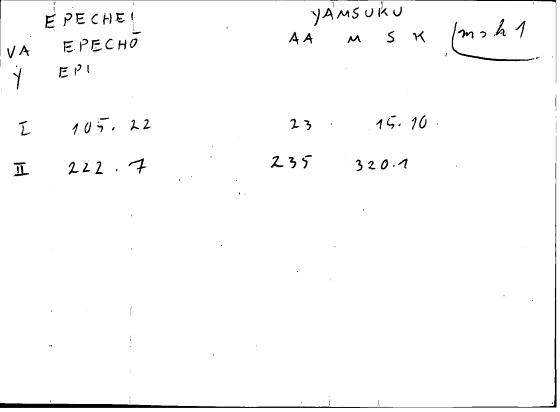 EPECHEI YAMSUKU
VA EPECHO AA M S K
Y EPI
I 105.22 23 15.10
II 222.7 235 320.1